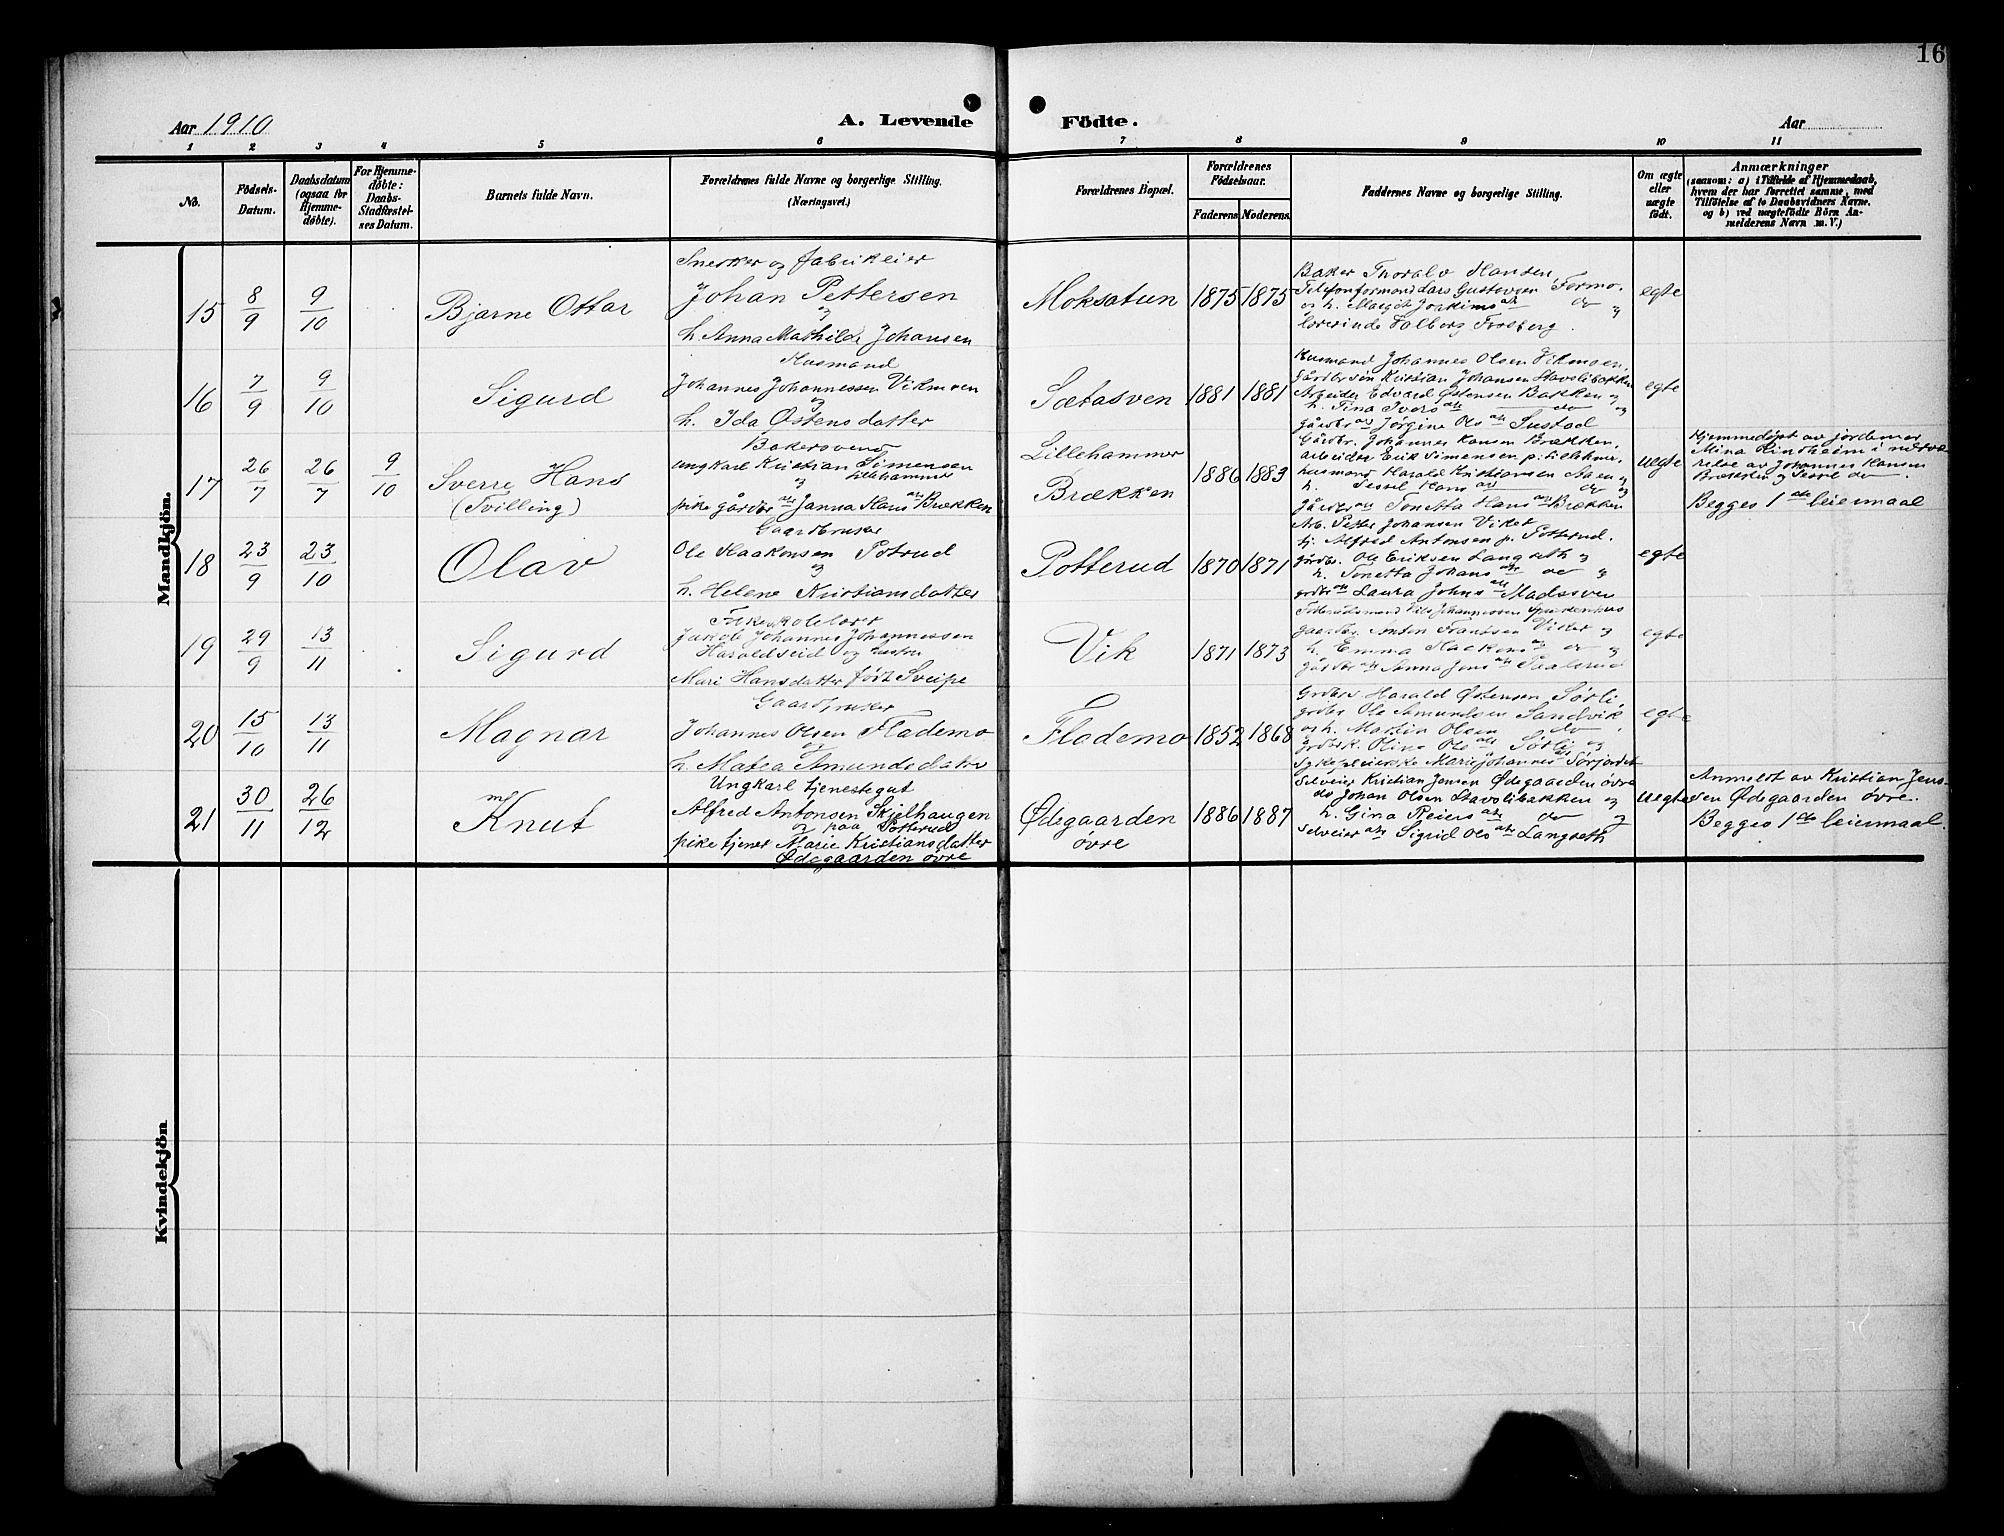 16
Aar 1910
A. Levende Födte.
Aar
1 2 3 4 5 6 7 8 9 10 11
No.
Födsels-
Datum.
Daabsdatum
(ogsaa for
Hjemme-
døbte).
For Hjemme-
døbte:
Daabs-
Stadfæstel-
ses Datum.
Barnets fulde Navn.
Forældrenes fulde Navne og borgerlige Stilling.
(Næringsvei.)
Forældrenes Bopæl.
Forældrenes
Födselsaar.
Faderens Moderens.
Faddernes Navne og borgerlige Stilling.
Om ægte
eller
uægte
født.
Anmærkninger
(saasom: a) i Tilfælde af Hjemmedaab,
hvem der har forrettet samme, med
Tilföielse af to Daabsvidners Navne.
og b) ved uægtefödte Börn An-
melderens Navn m. V.)
Mandkjön.
15
8/9
9/10
Bjarne Ottar
Snerker og fabrikeier
Johan Pettersen
og
h. Anna Mathilde Johansen
Moksatun
1875 1875
Baker Thoralv Hansen,
Telefonformand Lars Gustavsen Formo,
og h. Margit Joakims dtr do og
lærerinde Valborg Frosberg.
egte
16
7/9
9/10
Sigurd
Husmand
Johannes Johannessen Vikmoen
og
h. Ida Østensdatter
Sætasven
1881 1881
Husmand Johannes Olsen Vikmoen,
Gårdbrsøn Kristian Johansen Stavslibakken
Arbeider Edvard Østensen Bakken og
h. Tina Ivers dtr do og
gårdbr dtr Jørgine Ols dtr Sustad
egte
17
26/7
26/7
9/10
Sverre Hans
(Tvilling)
Bakersvend
ungkarl Kristian Simensen
og Lillehammer
pike gårdbr dtr Janna Hans dtr Brækken
Lillehammer
Brækken
1886 1883
Gårdbr. Johannes Hansen Brækken,
arbeider Erik Simensen p. Lillehmr.
husmand Harald Kristiansen Aaen og
h. Sessil Hans dtr do og
gårdbr dtr Tonetta Hans dtr Brækken
uegte
Hjemmedöpt av jordemor
Mina Lindheim i nærvæ-
relse av Johannes Hansen
Brækken og Sessil do
Begges 1ste leiermaal
18
23/9
23/10
Olav
Gaardbruker
Ole Haakonsen Potrud
og
h. Helene Kristiansdatter
Potterud
1870 1871
Arb. Petter Johansen Viket
tj. Alfred Antonsen p. Potterud.
gårdbr. Ole Eriksen Langseth og
h. Tonetta Johans dtr do og
grdbr dtr Laura Johns dtr Madssven
egte
19
29/9
13/11
Sigurd
Jakob Johannes Johannessen
Haraldseid og hustru
Mari Hansdatter født Sveipe
Vik
1871 1873
gaardbr. Anton Frantsen Viker og
h. Emma Haakens dtr do og
gårdbr dtr Anna Jens dtr Paalsrud
egte
20
15/10
13/11
Magnar
Gaardbruker
Johannes Olsen Flademo
og
h. Matea Amundsdatter
Flademo
1852 1868
Grdbr. Harald Østensen Sørli,
grdbr Ole Amundsen Sandvik
og h. Martin Olsen do,
grdbrk. Olina Ols dtr Sørli og
Sykepleierske Marie Johannes dtr Sørjordet
egte
21
30/11
26/12
Knut
Ungkarl tjenestegut
Alfred Antonsen Skjelhaugen
og paa Potterud
pike tjener Marie Kristiansdatter
Ødegaarden övre
Ødegaarden
övre
1886 1887
Selveier Kristian Jensen Ødegaarden övre
do Johan Olsen Stavslibakken og
h. Gina Reiers dtr do og
Selveier dtr Sigrid Ols dtr Langseth
uegte
Anmeldt av Kristian Jens-
sen Ødegaarden övre.
Begges 1ste leiermaal.
Kvindekjön